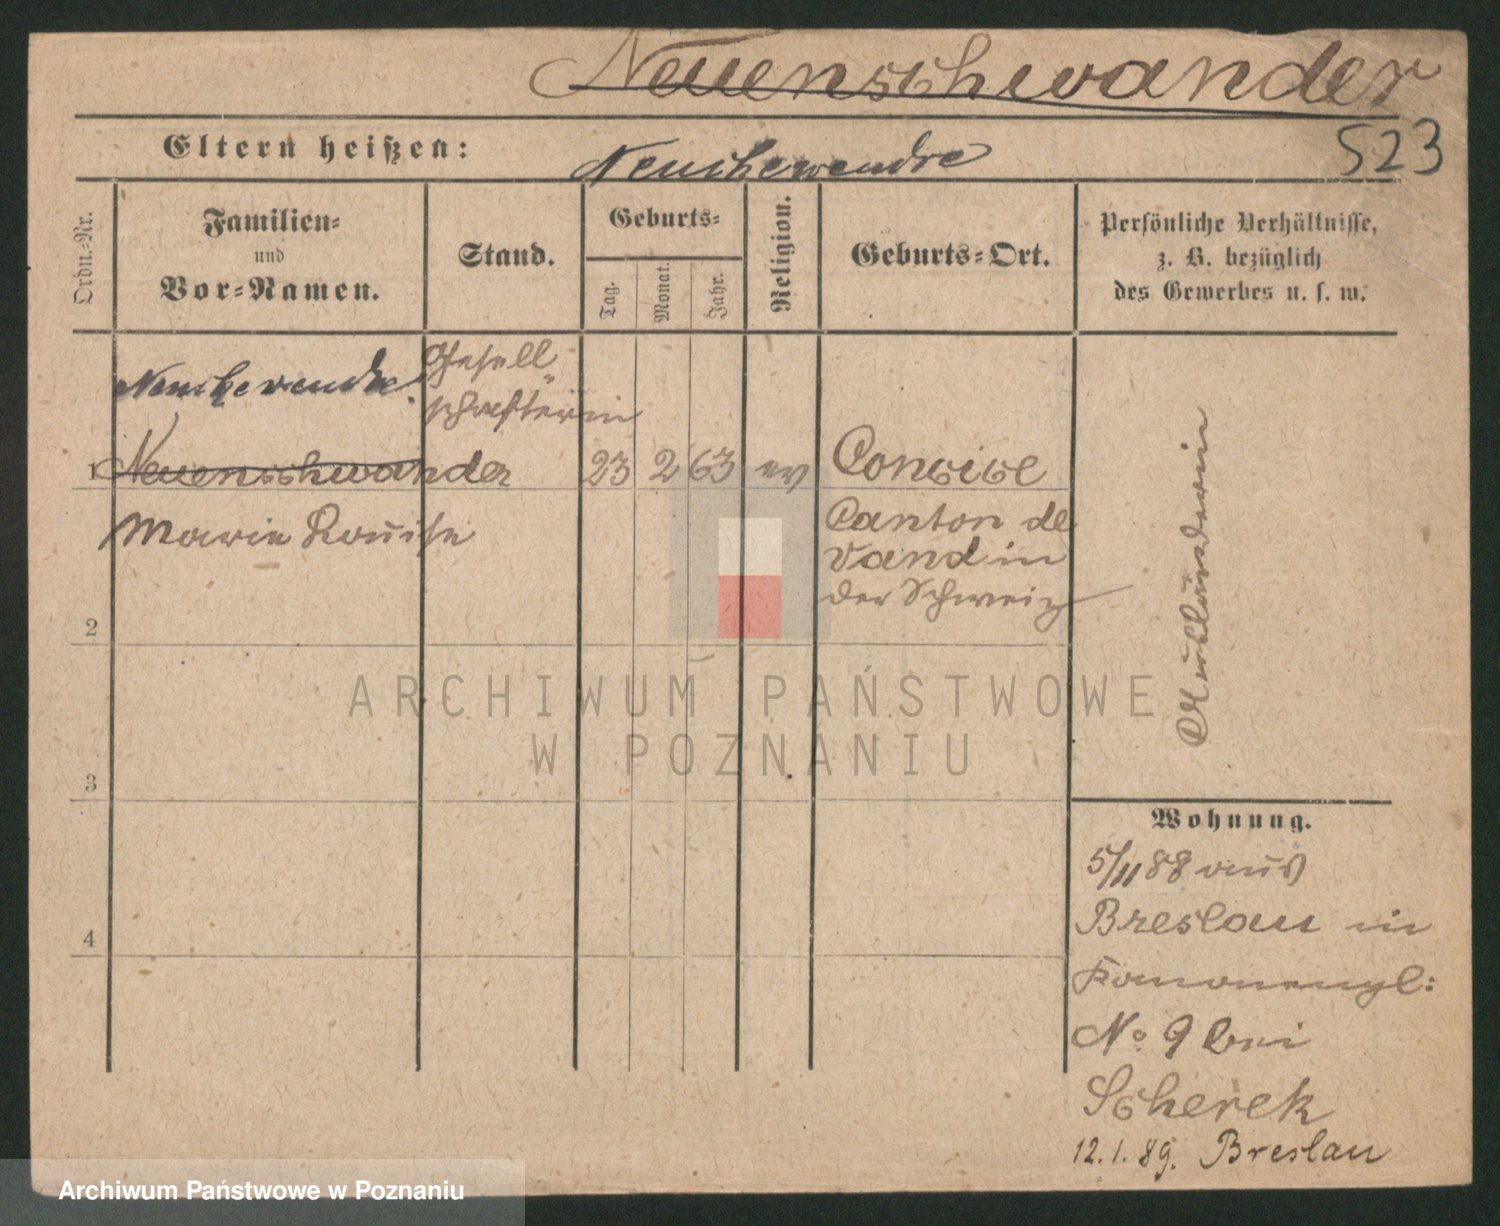 Neuenschwander
523
Eltern heißen: Neuchewendre
Ordn.-Nr.
Familien-
und
Vor-Namen.
Stand.
Geburts-
Tag.
Monat.
Jahr.
Religion.
Geburts-Ort.
Persönliche Verhältnisse,
z. B. bezüglich
des Gewerbes u. s. w.
Gesell
schafterin
1 Neuenschwander 23 2 63 ev Concise
Marie Louise
Canton de
Vaud in
der Schweiz
Ausländerin
2
3
4
Wohnung.
5/11 88 aus
Breslau in
No. 9 bei
Scherek
12.1.89. Breslau
ARCHIWUM PAŃSTWOWE
W POZNANIU
Archiwum Państwowe w Poznaniu